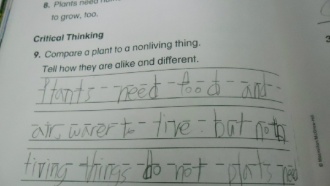 8. Plants need
to grow, too.
Critical Thinking
9. Compare a plant to a nonliving thing.
Tell how they are alike and different.
Plants need food and
air, water to live but not
living things do not plants need